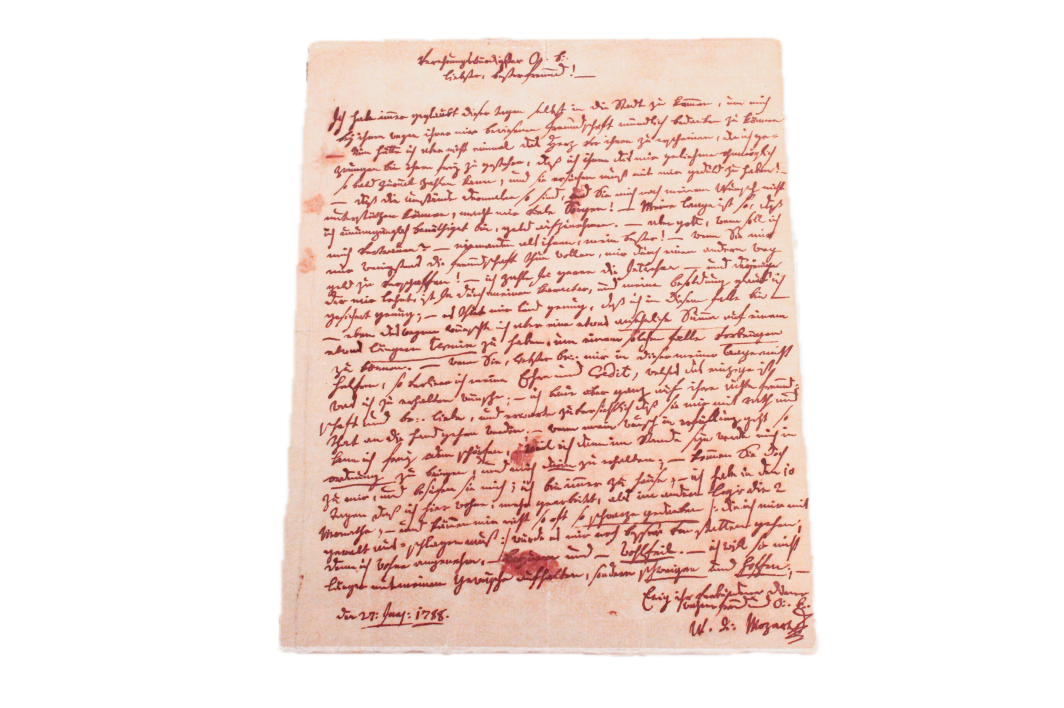 Verehrungswürdigster O. B:
liebster, bester freund! —
Ich habe immer geglaubt dieser tagen selbst in die Stadt zu kommen, um mich
bey ihnen wegen ihrer mir bewiesenen freundschaft mündlich bedanken zu können
— Nun hätte ich aber nicht einmal das Herz vor ihnen zu erscheinen, da ich ge=
zwungen bin ihnen frey zu gestehen, daß ich ihnen das mir geliehene ohnmöglich
so bald zurück zahlen kann, und sie ersuchen muß mit mir geduld zu haben! —
— daß die umstände dermalen so sind, und Sie mich nach meinem Wunsch nicht
unterstützen können, macht mir viele Sorgen! — Meine lage ist so, daß
ich unumgänglich benöthiget bin, geld aufzunehmen. — aber gott, wem soll ich
mich vertrauen? — niemandem als ihnen, mein bester! — wenn Sie mir
nur wenigstens die freundschaft thun wollen, mir durch einen andern weg
geld zu verschaffen! — ich zahle Ja gerne die — und derjenige
der mir lehnt, ist Ja durch meinen karacter, und meine besoldung glaub ich
gesichert genug; — es thut mir leid genug, daß ich in diesem falle bin —
— eben deswegen wünschte ich aber eine etwas ansehnliche Summe auf einen
etwas längern Termin zu haben, um einem solchen falle vorbeugen
zu können. — wenn Sie, br: mir in dieser meiner lage nicht
helfen, so verliere ich meine Ehre und Credit, welches das einzige ist
was ich zu erhalten wünsche; — ich baue aber ganz auf ihre ächte freund=
schaft und br: liebe, und erwarte zuversichtlich daß sie mir mit rath und
that an die hand gehen werden. — wenn mein wunsch in erfüllung geht so
kann ich frey odem schöpfen, weil ich dann im Stande seyn werde mich in
ordnung zu bringen, und mich darin zu erhalten; — kommen Sie doch
zu mir, und besuchen sie mich; ich bin immer zu hause; — ich habe in den 10
tagen daß ich hier wohne, mehr gearbeitet, als im andern logis die 2
Monathe; — und kämen mir nicht so oft so schwarze gedanken |: die ich nur mit
gewalt ausschlagen muß :| würde es mir noch besser von statten gehen,
denn ich wohne angenehm, — bequem und — Wohlfeil. — ich will sie nicht
länger mit meinem Gewäsche aufhalten, sondern schweigen und hoffen. —
Ewig ihr verbundner Diener
wahrer freund und O: B:
den 27: Juny: 1788.
W. A: Mozart